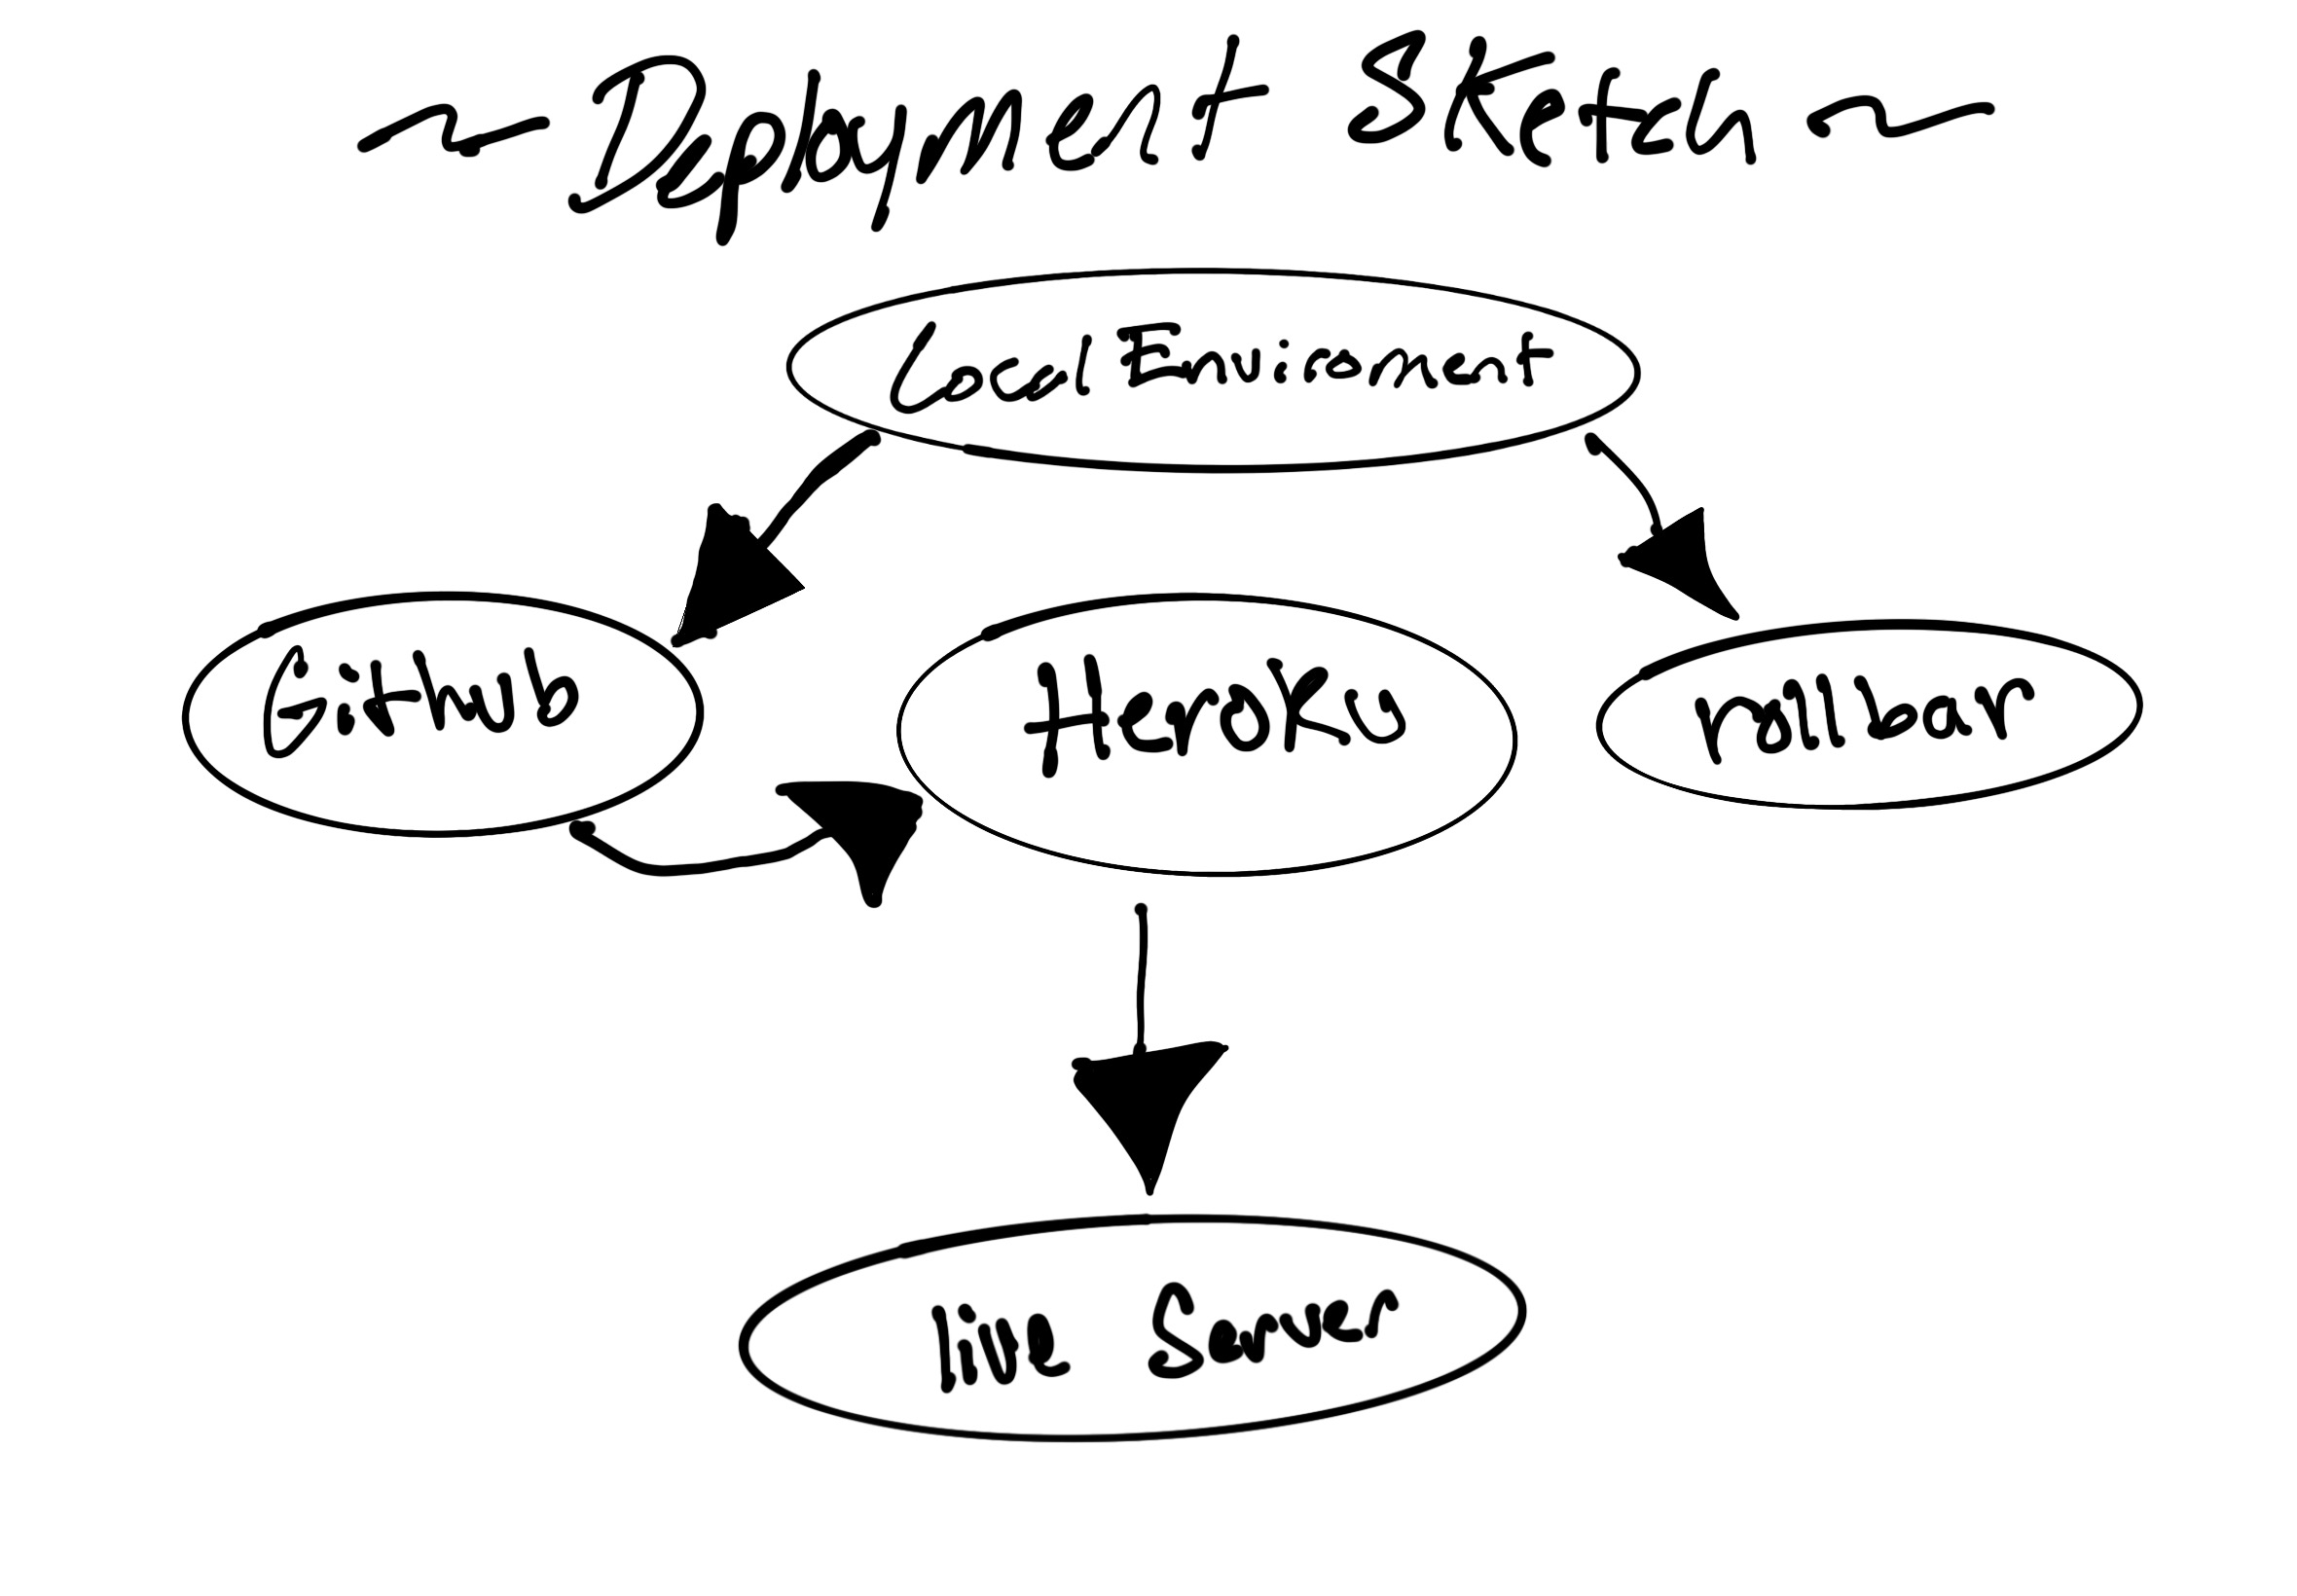 ~ Deployment Sketch ~
Local Enviroment
Github
Heroku
rollbar
live Server